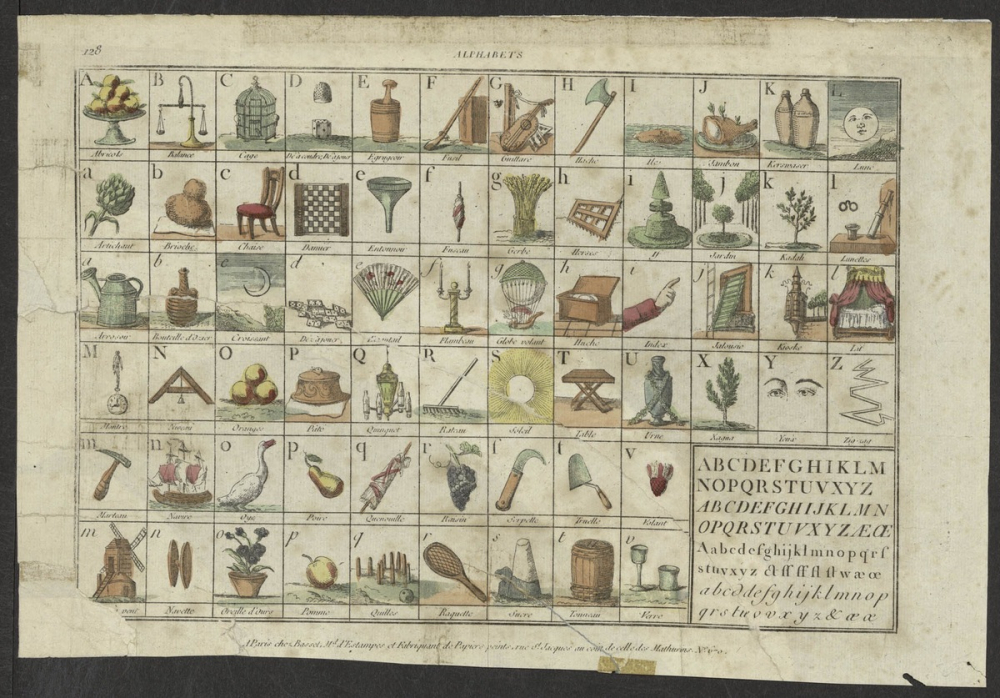 128
ALPHABETS
A B C D E F G H I J K L
Abricots Balance Cage Dé à coudre, Dé à jouer Egrugeoir Fusil Guittare Hache Iles Jambon Kerswaser Lune
a b c d e f g h i j k l
Artichaut Brioche Chaise Damier Entonnoir Fuseau Gerbe Herses If Jardin Kadah Lunettes
a b c d e f g h i j k l
Arrosoir Bouteille d'osier Croissant Dez à jouer Eventail Flambeau Globe volant Huche Index Jalousie Kioske Lit
M N O P Q R S T U X Y Z
Montre Niveau Oranges Pâté Quinquet Rateau Soleil Table Urne Yeux Zig-zag
m n o p q r s t v
Marteau Navire Oye Poire Quenouille Raisin Serpette Truelle Volant
m n o p q r s t v
Navette Oreille d'Ours Pomme Quilles Raquette Sucre Tonneau Verre
ABCDEFGHIKLM
NOPQRSTUVXYZ
ABCDEFGHIJKLMN
OPQRSTUVXYZÆŒ
Aabcdefghijklmnopqrſ
stuvxyz &ſſ ff fl ſt w æ œ
abcdefghijklmnop
qrstuvvxyz& æ œ
A Paris chez Basset, Md. d'Estampes et Fabriquant de Papiers peints, rue St. Jacques au coin de celle des Mathurins.